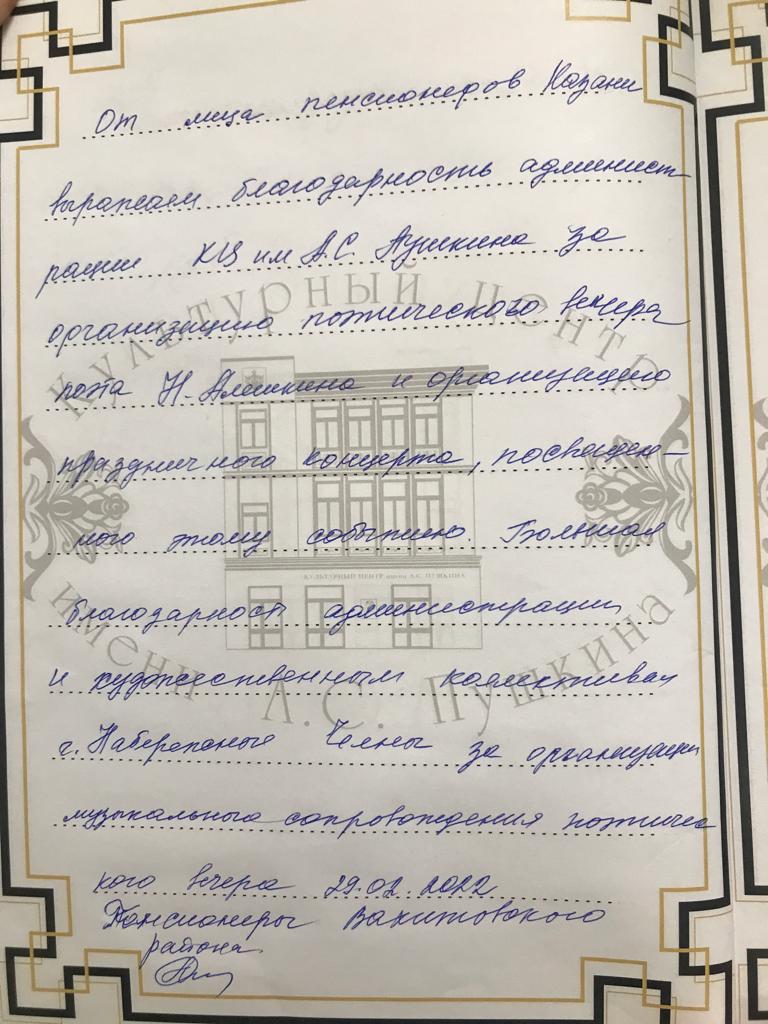 От лица пенсионеров Казани
выражаем благодарность админист
рации КЦ им А.С. Пушкина за
КУЛЬТУРНЫЙ ЦЕНТР
организацию поэтического вечера
поэта Н. Алешкина и организацию
праздничного концерта, посвящен-
ного этому событию. Большая
КУЛЬТУРНЫЙ ЦЕНТР имени А.С. ПУШКИНА
благодарность администрации
и художественным коллективам
имени А.С. Пушкина
г. Набережные Челны за организацию
музыкального сопровождения поэтичес
кого вечера 29.02.2022
Пенсионеры Вахитовского
района.